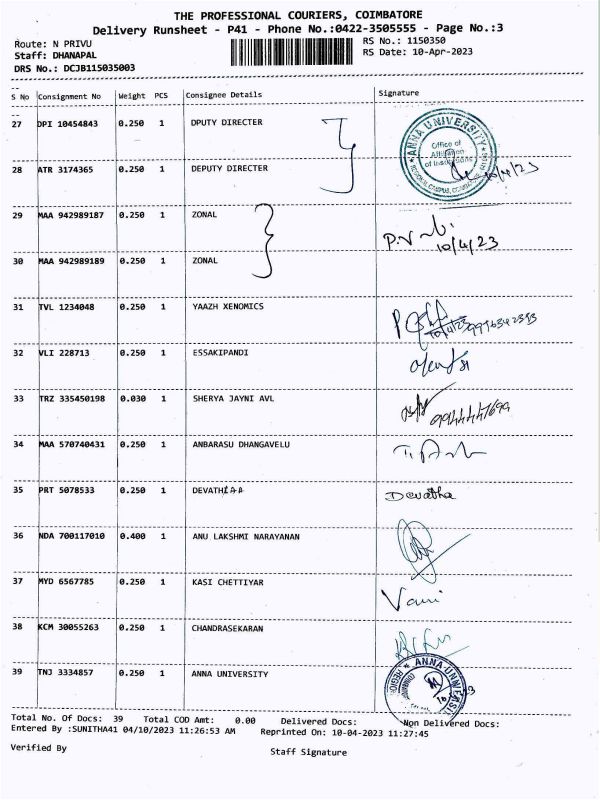 THE PROFESSIONAL COURIERS, COIMBATORE
Delivery Runsheet - P41 - Phone No.:0422-3505555 - Page No.:3
Route: N PRIVU RS No.: 1150350
Staff: DHANAPAL RS Date: 10-Apr-2023
DRS No.: DCJB115035003
S No Consignment No Weight PCS Consignee Details Signature
27 DPI 10454843 0.250 1 DPUTY DIRECTER
ANNA UNIVERSITY
Office of
28 ATR 3174365 0.250 1 DEPUTY DIRECTER 10/4/23
29 MAA 942989187 0.250 1 ZONAL
10/4/23
30 MAA 942989189 0.250 1 ZONAL
31 TVL 1234048 0.250 1 YAAZH XENOMICS
10/4/23
32 VLI 228713 0.250 1 ESSAKIPANDI
33 TRZ 335450198 0.030 1 SHERYA JAYNI AVL
34 MAA 570740431 0.250 1 ANBARASU DHANGAVELU
35 PRT 5078533 0.250 1 Devatha
36 NDA 700117010 0.400 1 ANU LAKSHMI NARAYANAN
37 MYD 6567785 0.250 1 KASI CHETTIYAR
38 KCM 30055263 0.250 1 CHANDRASEKARAN
39 TNJ 3334857 0.250 1 ANNA UNIVERSITY
Total No. Of Docs: 39 Total COD Amt: 0.00 Delivered Docs: Non Delivered Docs:
Entered By :SUNITHA41 04/10/2023 11:26:53 AM Reprinted On: 10-04-2023 11:27:45
Verified By Staff Signature